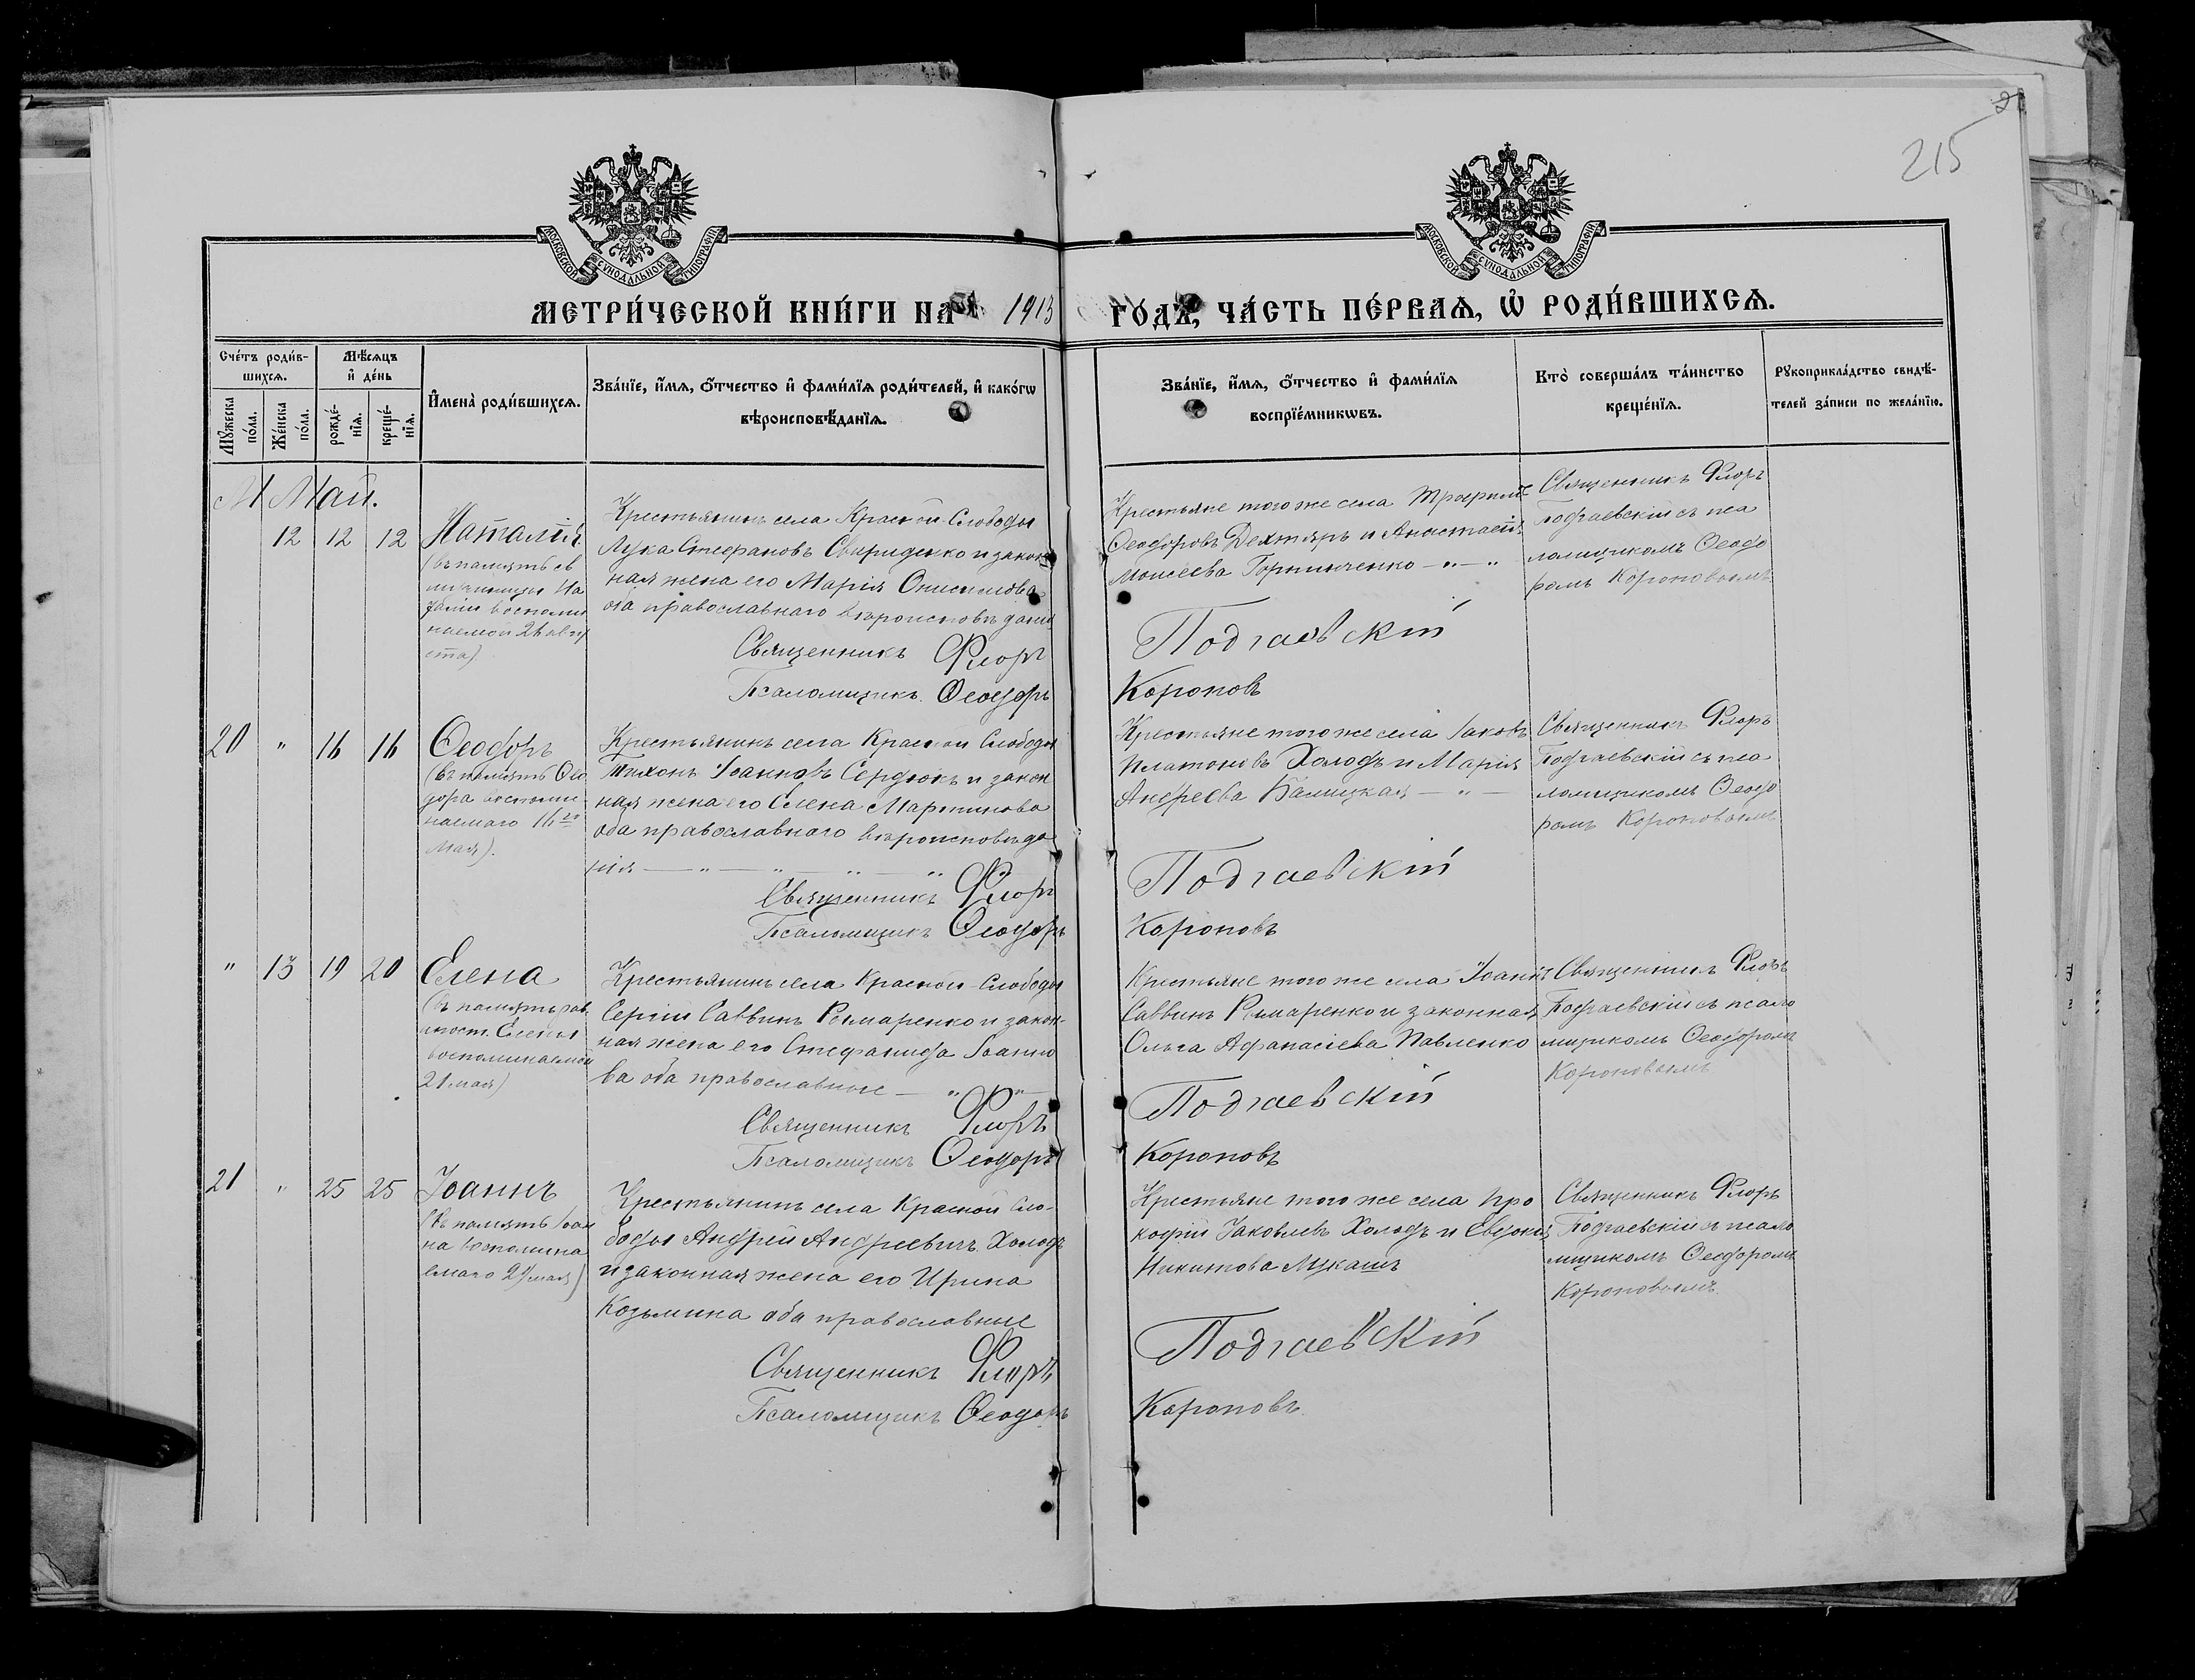 215
МОСКОВСКОЙ СѴНОДАЛЬНОЙ ТИПОГРАФІИ
МОСКОВСКОЙ СѴНОДАЛЬНОЙ ТИПОГРАФІИ
МЕТРИ́ЧЕСКОЙ КНИ́ГИ НА 1913 ГОДЪ, ЧА́СТЬ ПЕ́РВАѦ, Ѡ҆ РОДИ́ВШИХСѦ.
Сче́тъ роди́в-
шихсѧ.
Мѣ́сѧцъ
и҆ де́нь
Мꙋ́жеска
по́ла.
Же́нска
по́ла.
рожде́-
нїѧ.
креще́-
нїѧ.
И҆мена̀ роди́вшихсѧ.
Зва́нїе, и҆́мѧ, ѻ҆́тчество и҆ фами́лїѧ роди́телей, и҆ како́гѡ
вѣроисповѣ́данїѧ.
Зва́нїе, и҆́мѧ, ѻ҆́тчество и҆ фами́лїѧ
воспрїе́мникѡвъ.
Кто̀ соверша́лъ та́инство
креще́нїѧ.
Рꙋкоприкла́дство свидѣ́-
телей за́писи по жела́нїю.
М Май.
12 12 12
Наталія
(въ память св
мученицы На
таліи воспоми
наемой 26 авгу
ста).
Крестьянинъ села Красной-Слободы
Лука Стефановъ Свириденко и закон
ная жена его Марія Онисимова
оба православнаго вѣроисповѣданія
Священникъ Флоръ
Псаломщикъ Ѳеодоръ
Крестьяне того же села Трофимъ
Ѳеодоровъ Дехтяръ и Анастасія
Моисеева Горпинченко — „ — „
Подгаевскій
Короновъ
Священникъ Флоръ
Подгаевскій съ пса
ломщикомъ Ѳеодо
ромъ Короновымъ
20 „ 16 16
Ѳеодоръ
(въ память Ѳео
дора воспоми
наемаго 16го
мая).
Крестьянинъ села Красной Слободы
Тихонъ Іоанновъ Сердюкъ и закон
ная жена его Елена Мартинова
оба православнаго вѣроисповѣда
нія — „ — „ — „ — „
Священникъ Флоръ
Псаломщикъ Ѳеодоръ
Крестьяне того же села Іаковъ
Платоновъ Холодъ и Марія
Андреева Балицкая — „ —
Подгаевскій
Короновъ
Священникъ Флоръ
Подгаевскій съ пса
ломщикомъ Ѳеодо
ромъ Короновымъ
„ 13 19 20
Елена
(въ память рав
ноап. Елены
воспоминаемой
21 мая)
Крестьянинъ села Красной-Слободы
Сергій Саввинъ Рымаренко и закон-
ная жена его Стефанида Іоанно
ва оба православные — „ — „ —
Священникъ Флоръ
Псаломщикъ Ѳеодоръ
Крестьяне того же села Іоаннъ
Саввинъ Рымаренко и законная
Ольга Афанасіева Павленко
Подгаевскій
Короновъ
Священникъ Флоръ
Подгаевскій съ псало
мщикомъ Ѳеодоромъ
Короновымъ
21 „ 25 25
Іоаннъ
(въ память Іоан
на воспомина
емаго 24 мая)
Крестьянинъ села Красной Сло-
боды Андрей Андреевичъ Холодъ
и законная жена его Ирина
Козьмина оба православные
Священникъ Флоръ
Псаломщикъ Ѳеодоръ
Крестьяне того же села Про
кофій Іаковлевъ Холодъ и Евдокія
Никитова Лукашъ
Подгаевскій
Короновъ
Священникъ Флоръ
Подгаевскій съ псало
мщикомъ Ѳеодоромъ
Короновымъ.